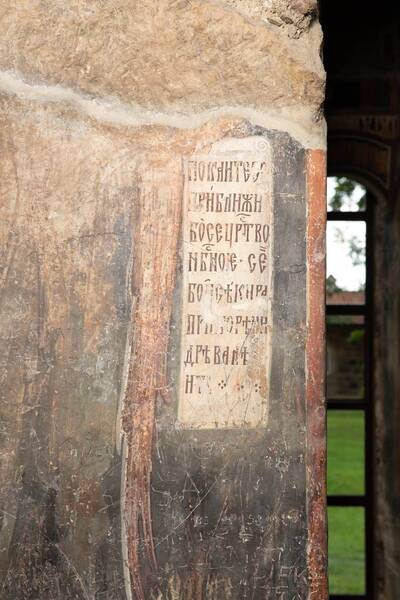 ПОКАИТЕСЕ
ПРИБЛИЖИ
БОСЕЦРⷭ҇ТВО
НБ҃НОЕ · СЕ
БОИСЕКИРА
ПРИКОРЕНИ
ДРѢВАЛѢ